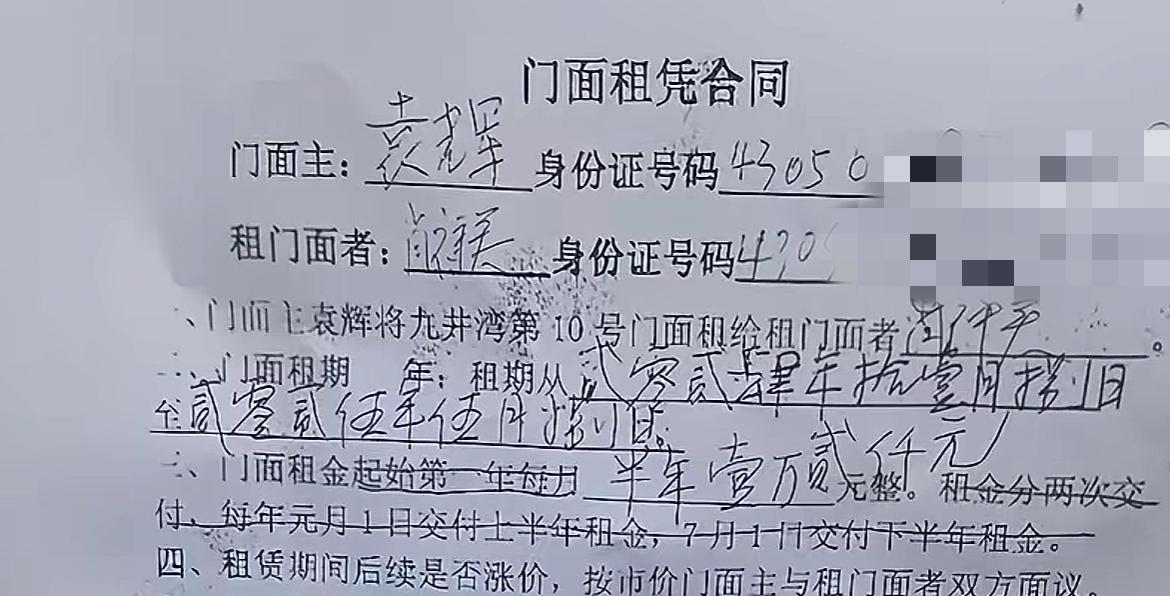 门面租凭合同
门面主：袁辉 身份证号码43050
租门面者： 身份证号码430
一、门面主袁辉将九井湾第10号门面租给租门面者 。
二、门面租期 年；租期从贰零贰肆年拾壹月捌日
至贰零贰伍年伍月捌日。
三、门面租金起始第一年每月 半年壹万贰仟元 元整。租金分两次交
付，每年元月1日交付上半年租金，7月1日交付下半年租金。
四、租赁期间后续是否涨价，按市价门面主与租门面者双方面议。